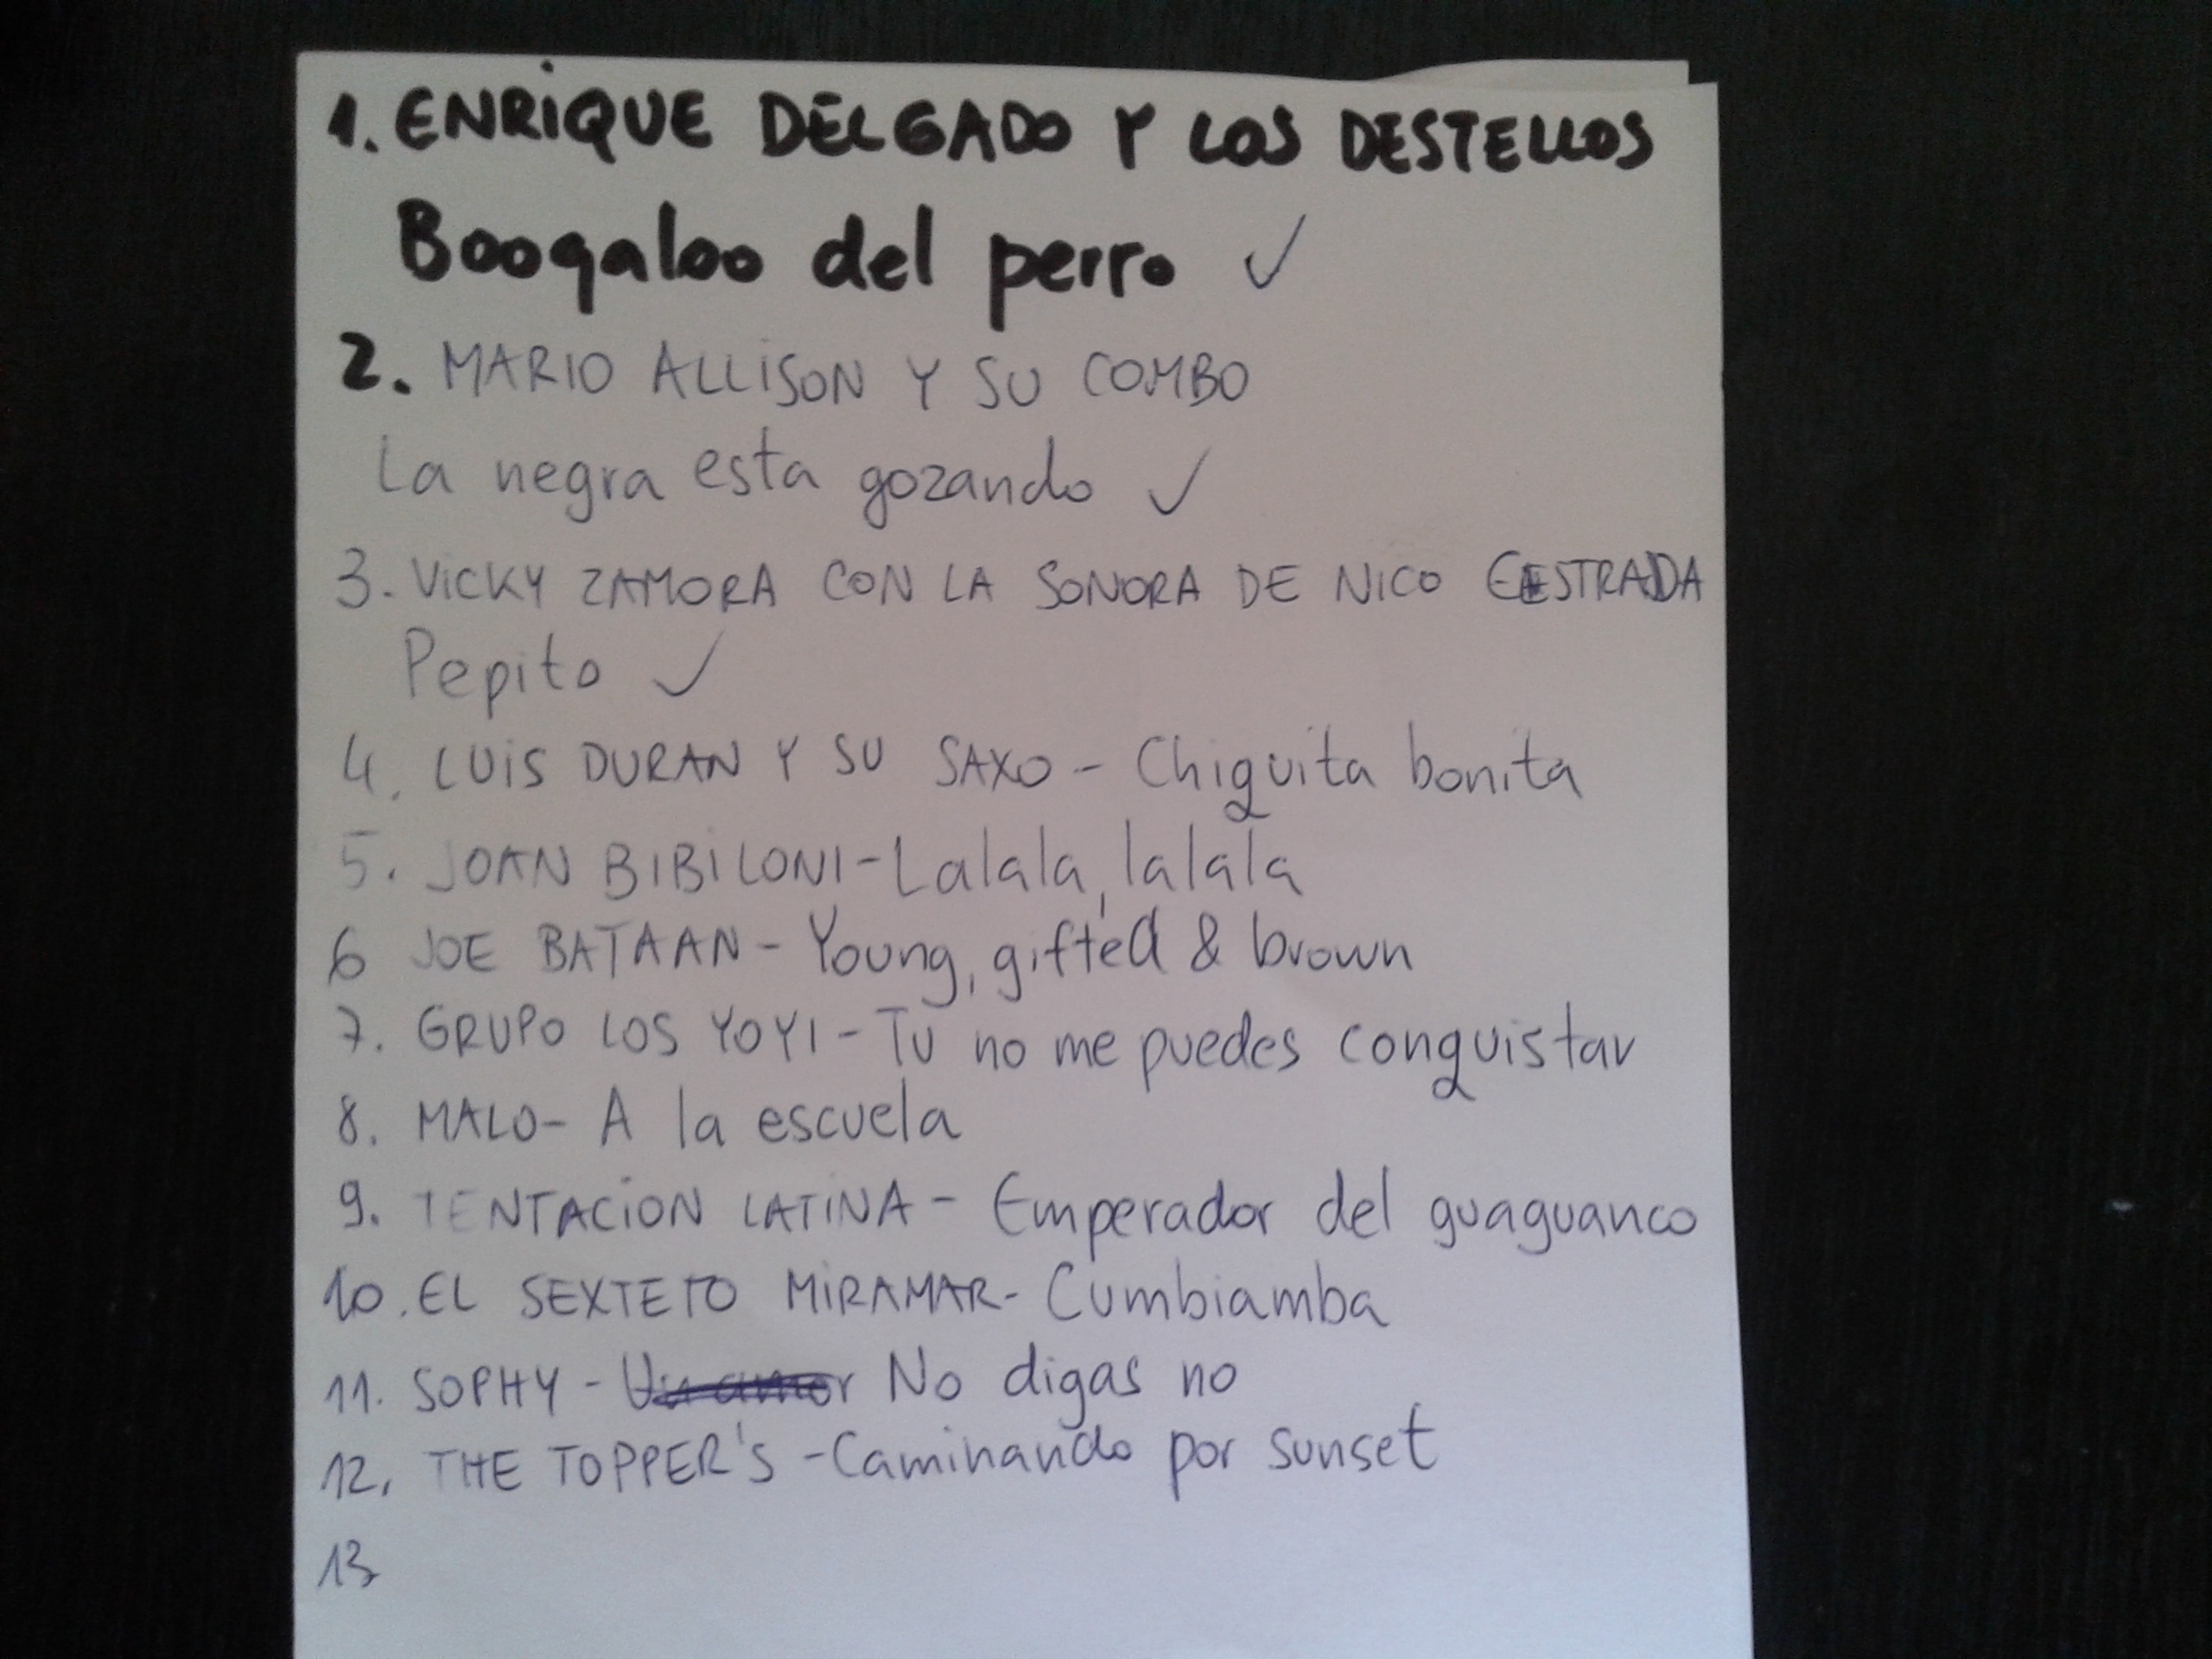 1. ENRIQUE DELGADO Y LOS DESTELLOS
Boogaloo del perro ✓
2. MARIO ALLISON Y SU COMBO
La negra esta gozando ✓
3. VICKY ZAMORA CON LA SONORA DE NICO ESTRADA
Pepito ✓
4. LUIS DURAN Y SU SAXO - Chiquita bonita
5. JOAN BIBILONI - Lalala, lalala
6 JOE BATAAN - Young, gifted & brown
7. GRUPO LOS YOYI - Tu no me puedes conquistar
8. MALO - A la escuela
9. TENTACION LATINA - Emperador del guaguanco
10. EL SEXTETO MIRAMAR - Cumbiamba
11. SOPHY - Un amor No digas no
12. THE TOPPER'S - Caminando por sunset
13